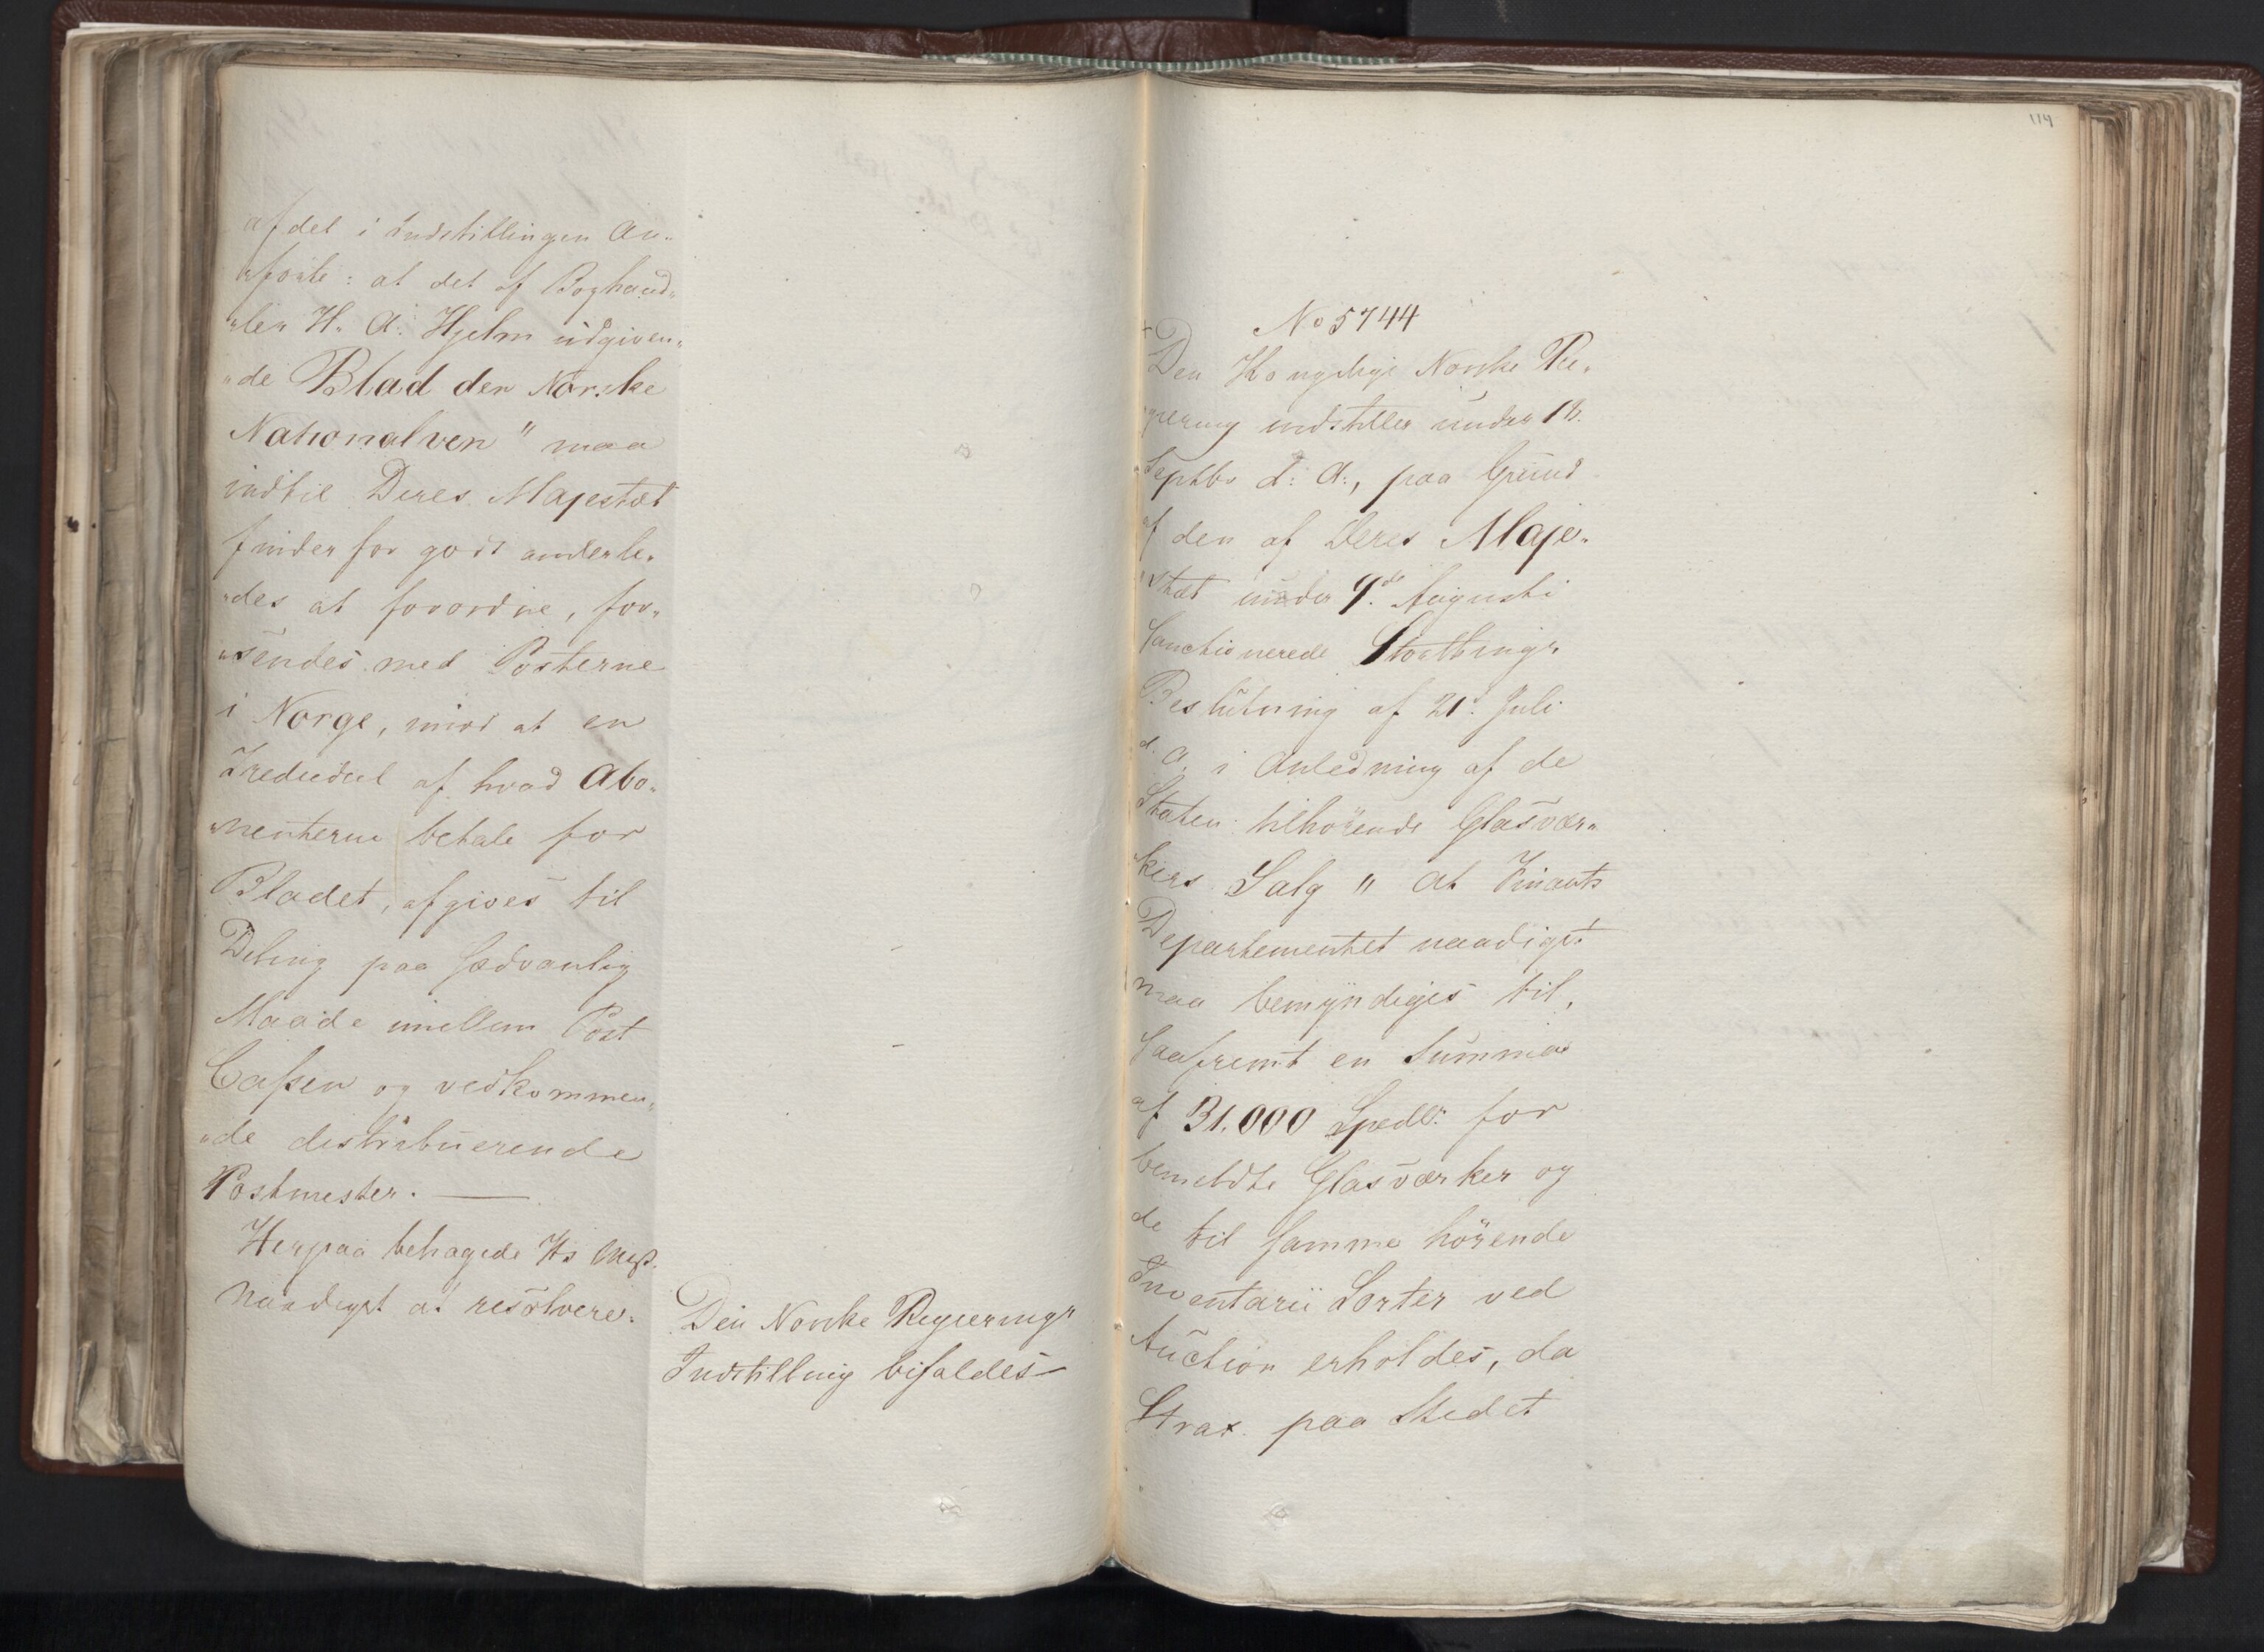 af det i Indstillingen An„
„förte: at det af Boghand„
„ler H. A. Hjelm udgiven„
„de Blad den Norske
Nationalven" maa
indtil Deres Majestæt
finder for godt anderle„
„des at forordne, for„
„sendes med Posterne
i Norge, mod at en
Trediedeel af hvad Abo„
„nenterne betale for
Bladet, afgives til
Deling paa sædvanlig
Maade imellem Post
Cassen og vedkommen„
„de distribuerende
Postmester. —
Herpaa behagede Hs Majt.
Naadigst at resolvere.
Den Norske Regierings
Indstilling bifaldes
114
No 5744
Den Kongelige Norske Re„
„giering indstiller under 18.
Septbr d: A:, paa Grund
af den af Deres Maje„
„stæt under 9de Augusti
sanctionerede Storthings
Beslutning af 21. Juli
d. A. i Anledning af de
Staten tilhörende Glasvær„
„kers Salg " at Finants
Departementet naadigst
maa bemyndiges til,
saafremt en Summa
af 31.000 Spedlr: for
bemeldte Glasværker og
de til samme hörende
Inventarii Sorter ved
Auction erholdes, da
Strax paa Stedet